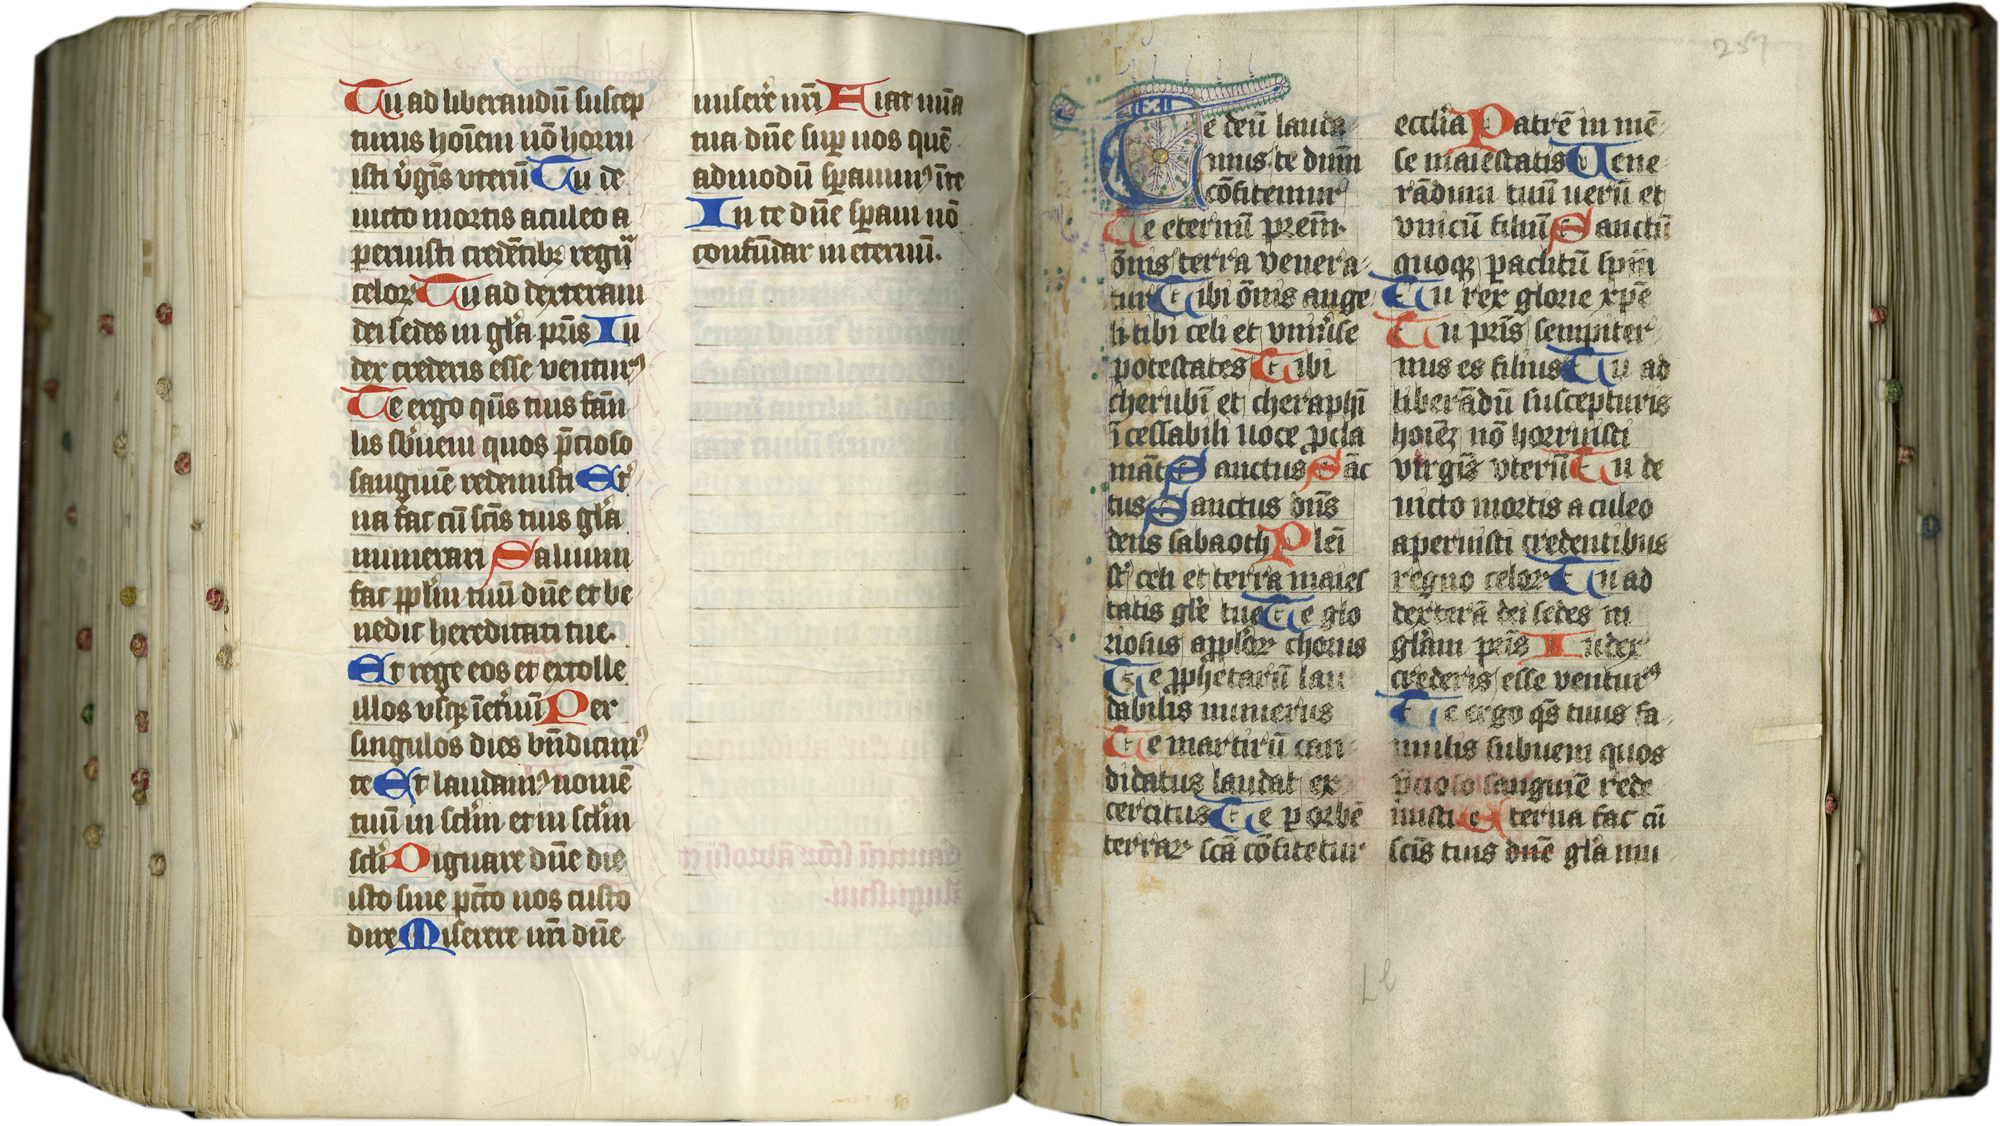 Tu ad liberandū suscep
turus hoīem nō horru
isti v̓gīs vterū Tu de
uicto mortis aculeo a
peruisti credētibꝫ regn̄
celoꝝ Tu ad dexteram
dei sedes in gl̄a pr̄is Iu
dex crederis esse venturꝰ
Te ergo qn̄s tuis fam̄
lis sb̓ueni quos p̄cioso
sanguiē redemisti Et̓
na fac cū sc̄is tuis gl̄a
munerari Saluum
fac ppl̄m tuū dn̄e et be
nedic hereditati tue.
Et rege eos et extolle
illos vsqꝫ ī et̓nū Per
singulos dies bn̄dicimꝰ
te Et laudamꝰ nomē
tuū in scl̄m et in scl̄m
scl̄i Dignare dn̄e die
isto sine pctō nos custo
dire Miserere nr̄i dn̄e
miserē nr̄i Fiat mīa
tua dn̄e suꝑ nos quē
admodū sꝑauimꝰ ī te
In te dn̄e sꝑaui nō
confūdar in eternū.
257
Te deū lauda
mus te dnm̄
cōfitemur
Te eternū prem̄
ōnis terra venera
tur Tibi ōnis ange
li tibi celi et vniūse
potestates Tibi
cherubī et cheraphī
īcessabili uoce ꝓcla
māt Sanctus Sāc
tus Sanctus dn̄s
deus sabaoth Plei
s̄t celi et terra maies
tatis gl̄e tue Te glo
riosus appl̄oꝝ chorus
Te ꝓphetarū lau
dabilis numerus
Te martirū can
didatus laudat ex
cercitus Te ꝑ orbē
terraꝝ scā cōfitetur
ecclīa Patrē in mē
se maiestatis Uene
rādum tuū uerū et
vnicū filiū Sanctū
quoqꝫ paclitū spm̄
Tu rex glorie xp̄e
Tu pr̄is sempiter
nus es filius Tu ad
liberādū suscepturis
hoiēꝫ nō horruisti
virgīs vterū Tu de
uicto mortis aculeo
aperuisti credentibus
regno celoꝝ Tu ad
dexterā dei sedes in
glam̄ pr̄is Iudex
crederis esse venturꝰ
Te ergo qs̄ tuus fa
mulis subueni quos
p̄cioso sanguīe rede
misti Eterna fac cū
scīs tuis dn̄e gl̄a mu